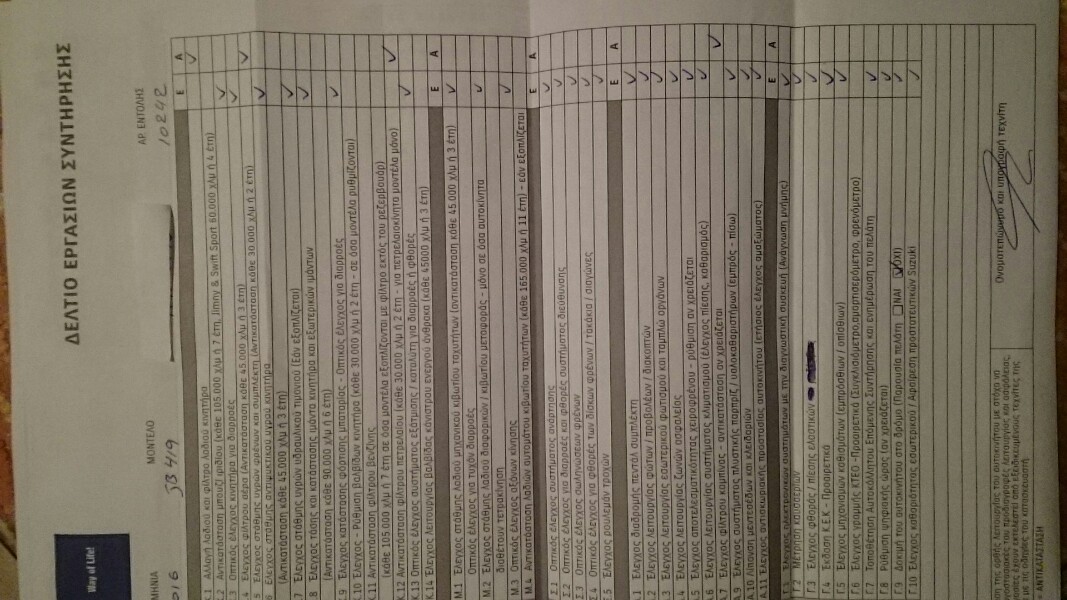 Way of Life!
ΔΕΛΤΙΟ ΕΡΓΑΣΙΩΝ ΣΥΝΤΗΡΗΣΗΣ
ΜΗΝΙΑ ΜΟΝΤΕΛΟ ΑΡ. ΕΝΤΟΛΗΣ
016 JB419 10242
Ε Α
.1 Αλλαγή λαδιού και φίλτρο λαδιού κινητήρα
.2 Αντικατάσταση μπουζί (κάθε 105.000 χλμ ή 7 έτη, Jimny & Swift Sport 60.000 χλμ ή 4 έτη)
.3 Οπτικός έλεγχος κινητήρα για διαρροές
.4 Έλεγχος φίλτρου αέρα (Αντικατάσταση κάθε 45.000 χλμ ή 3 έτη)
.5 Έλεγχος στάθμης υγρών φρένων και συμπλέκτη (Αντικατάσταση κάθε 30.000 χλμ ή 2 έτη)
6 Έλεγχος στάθμης αντιψυκτικού υγρού κινητήρα
(Αντικατάσταση κάθε 45.000 χλμ ή 3 έτη)
.7 Έλεγχος στάθμης υγρού υδραυλικού τιμονιού (Εάν εξοπλίζεται)
.8 Έλεγχος τάσης και κατάστασης ιμάντα κινητήρα και εξωτερικών ιμάντων
(Αντικατάσταση κάθε 90.000 χλμ ή 6 έτη)
.9 Έλεγχος κατάστασης φόρτισης μπαταρίας - Οπτικός έλεγχος για διαρροές
Κ.10 Έλεγχος - Ρύθμιση βαλβίδων κινητήρα (κάθε 30.000 χλμ ή 2 έτη - σε όσα μοντέλα ρυθμίζονται)
Κ.11 Αντικατάσταση φίλτρου βενζίνης
(κάθε 105.000 χλμ ή 7 έτη σε όσα μοντέλα εξοπλίζονται με φίλτρο εκτός του ρεζερβουάρ)
Κ.12 Αντικατάσταση φίλτρου πετρελαίου (κάθε 30.000 χλμ ή 2 έτη - για πετρελαιοκίνητα μοντέλα μόνο)
Κ.13 Οπτικός έλεγχος συστήματος εξάτμισης / καταλύτη για διαρροές ή φθορές
Κ.14 Έλεγχος λειτουργίας βαλβίδας κάνιστρου ενεργού άνθρακα (κάθε 45000 χλμ ή 3 έτη)
Ε Α
Μ.1 Έλεγχος στάθμης λαδιού μηχανικού κιβωτίου ταχυτήτων (αντικατάσταση κάθε 45.000 χλμ ή 3 έτη)
Οπτικός έλεγχος για τυχόν διαρροές
Μ.2 Έλεγχος στάθμης λαδιού διαφορικών / κιβωτίου μεταφοράς - μόνο σε όσα αυτοκίνητα
διαθέτουν τετρακίνηση
Μ.3 Οπτικός έλεγχος αξόνων κίνησης
Μ.4 Αντικατάσταση λαδιών αυτομάτου κιβωτίου ταχυτήτων (κάθε 165.000 χλμ ή 11 έτη) - εάν εξοπλίζεται
Ε Α
Σ.1 Οπτικός έλεγχος συστήματος ανάρτησης
Σ.2 Οπτικός έλεγχος για διαρροές και φθορές συστήματος διεύθυνσης
Σ.3 Οπτικός έλεγχος σωλήνώσεων φρένων
Σ.4 Οπτικός έλεγχος για φθορές των δίσκων φρένων / τακάκια / σιαγώνες
Σ.5 Έλεγχος ρουλεμάν τροχών
Ε Α
.1 Έλεγχος διαδρομής πεντάλ συμπλέκτη
.2 Έλεγχος λειτουργίας φώτων / προβολέων / διακοπτών
.3 Έλεγχος λειτουργίας εσωτερικού φωτισμού και ταμπλώ οργάνων
Α.4 Έλεγχος λειτουργίας ζωνών ασφαλείας
Α.5 Έλεγχος αποτελεσματικότητας χειροφρένου - ρύθμιση αν χρειάζεται
Α.6 Έλεγχος λειτουργίας συστήματος κλιματισμού (έλεγχος πίεσης, καθαρισμός)
Α.7 Έλεγχος φίλτρου καμπίνας - αντικατάσταση αν χρειάζεται
Α.9 Έλεγχος συστήματος πλυστικής παρμπρίζ / υαλοκαθαριστήρων (εμπρός - πίσω)
Α.10 Λίπανση μεντεσέδων και κλειδαριών
Α.11 Έλεγχος αντισκωριακής προστασίας αυτοκινήτου (ετήσιος έλεγχος αμαξώματος)
Ε Α
Έλεγχος ηλεκτρονικών συστημάτων με την διαγνωστική συσκευή (Ανάγνωση μνήμης)
Γ.2 Μέτρηση καυσαερίων
Γ.3 Έλεγχος φθοράς / πίεσης ελαστικών
Γ.4 Έκδοση Κ.Ε.Κ - Προαιρετικό
Γ.5 Έλεγχος μηχανισμών καθισμάτων (εμπρόσθιων / οπίσθιων)
Γ.6 Έλεγχος γραμμής ΚΤΕΟ - Προαιρετικό (Συγκλισιόμετρο, αμορτισερόμετρο, φρενόμετρο)
Γ.7 Τοποθέτηση Αυτοκόλλητου Επόμενης Συντήρησης και ενημέρωση του πελάτη
Γ.8 Ρύθμιση ψηφιακής ώρας (αν χρειάζεται)
Γ.9 Δοκιμή του αυτοκινήτου στο δρόμο (Παρουσία πελάτη ΝΑΙ ΟΧΙ)
Γ.10 Έλεγχος καθαριότητας εσωτερικού / Αφαίρεση προστατευτικών Suzuki
Ονοματεπώνυμο και υπογραφή τεχνίτη
ση της ορθής λειτουργίας του αυτοκινήτου με στόχο να
ασίες του προδιαγραφές λειτουργίας και ασφάλειας
έπει να έχουν εκτελεστεί από εξειδικευμένους τεχνίτες της
ις οδηγίες του κατασκευαστή.
ΑΝΤΙΚΑΤΑΣΤΑΣΗ